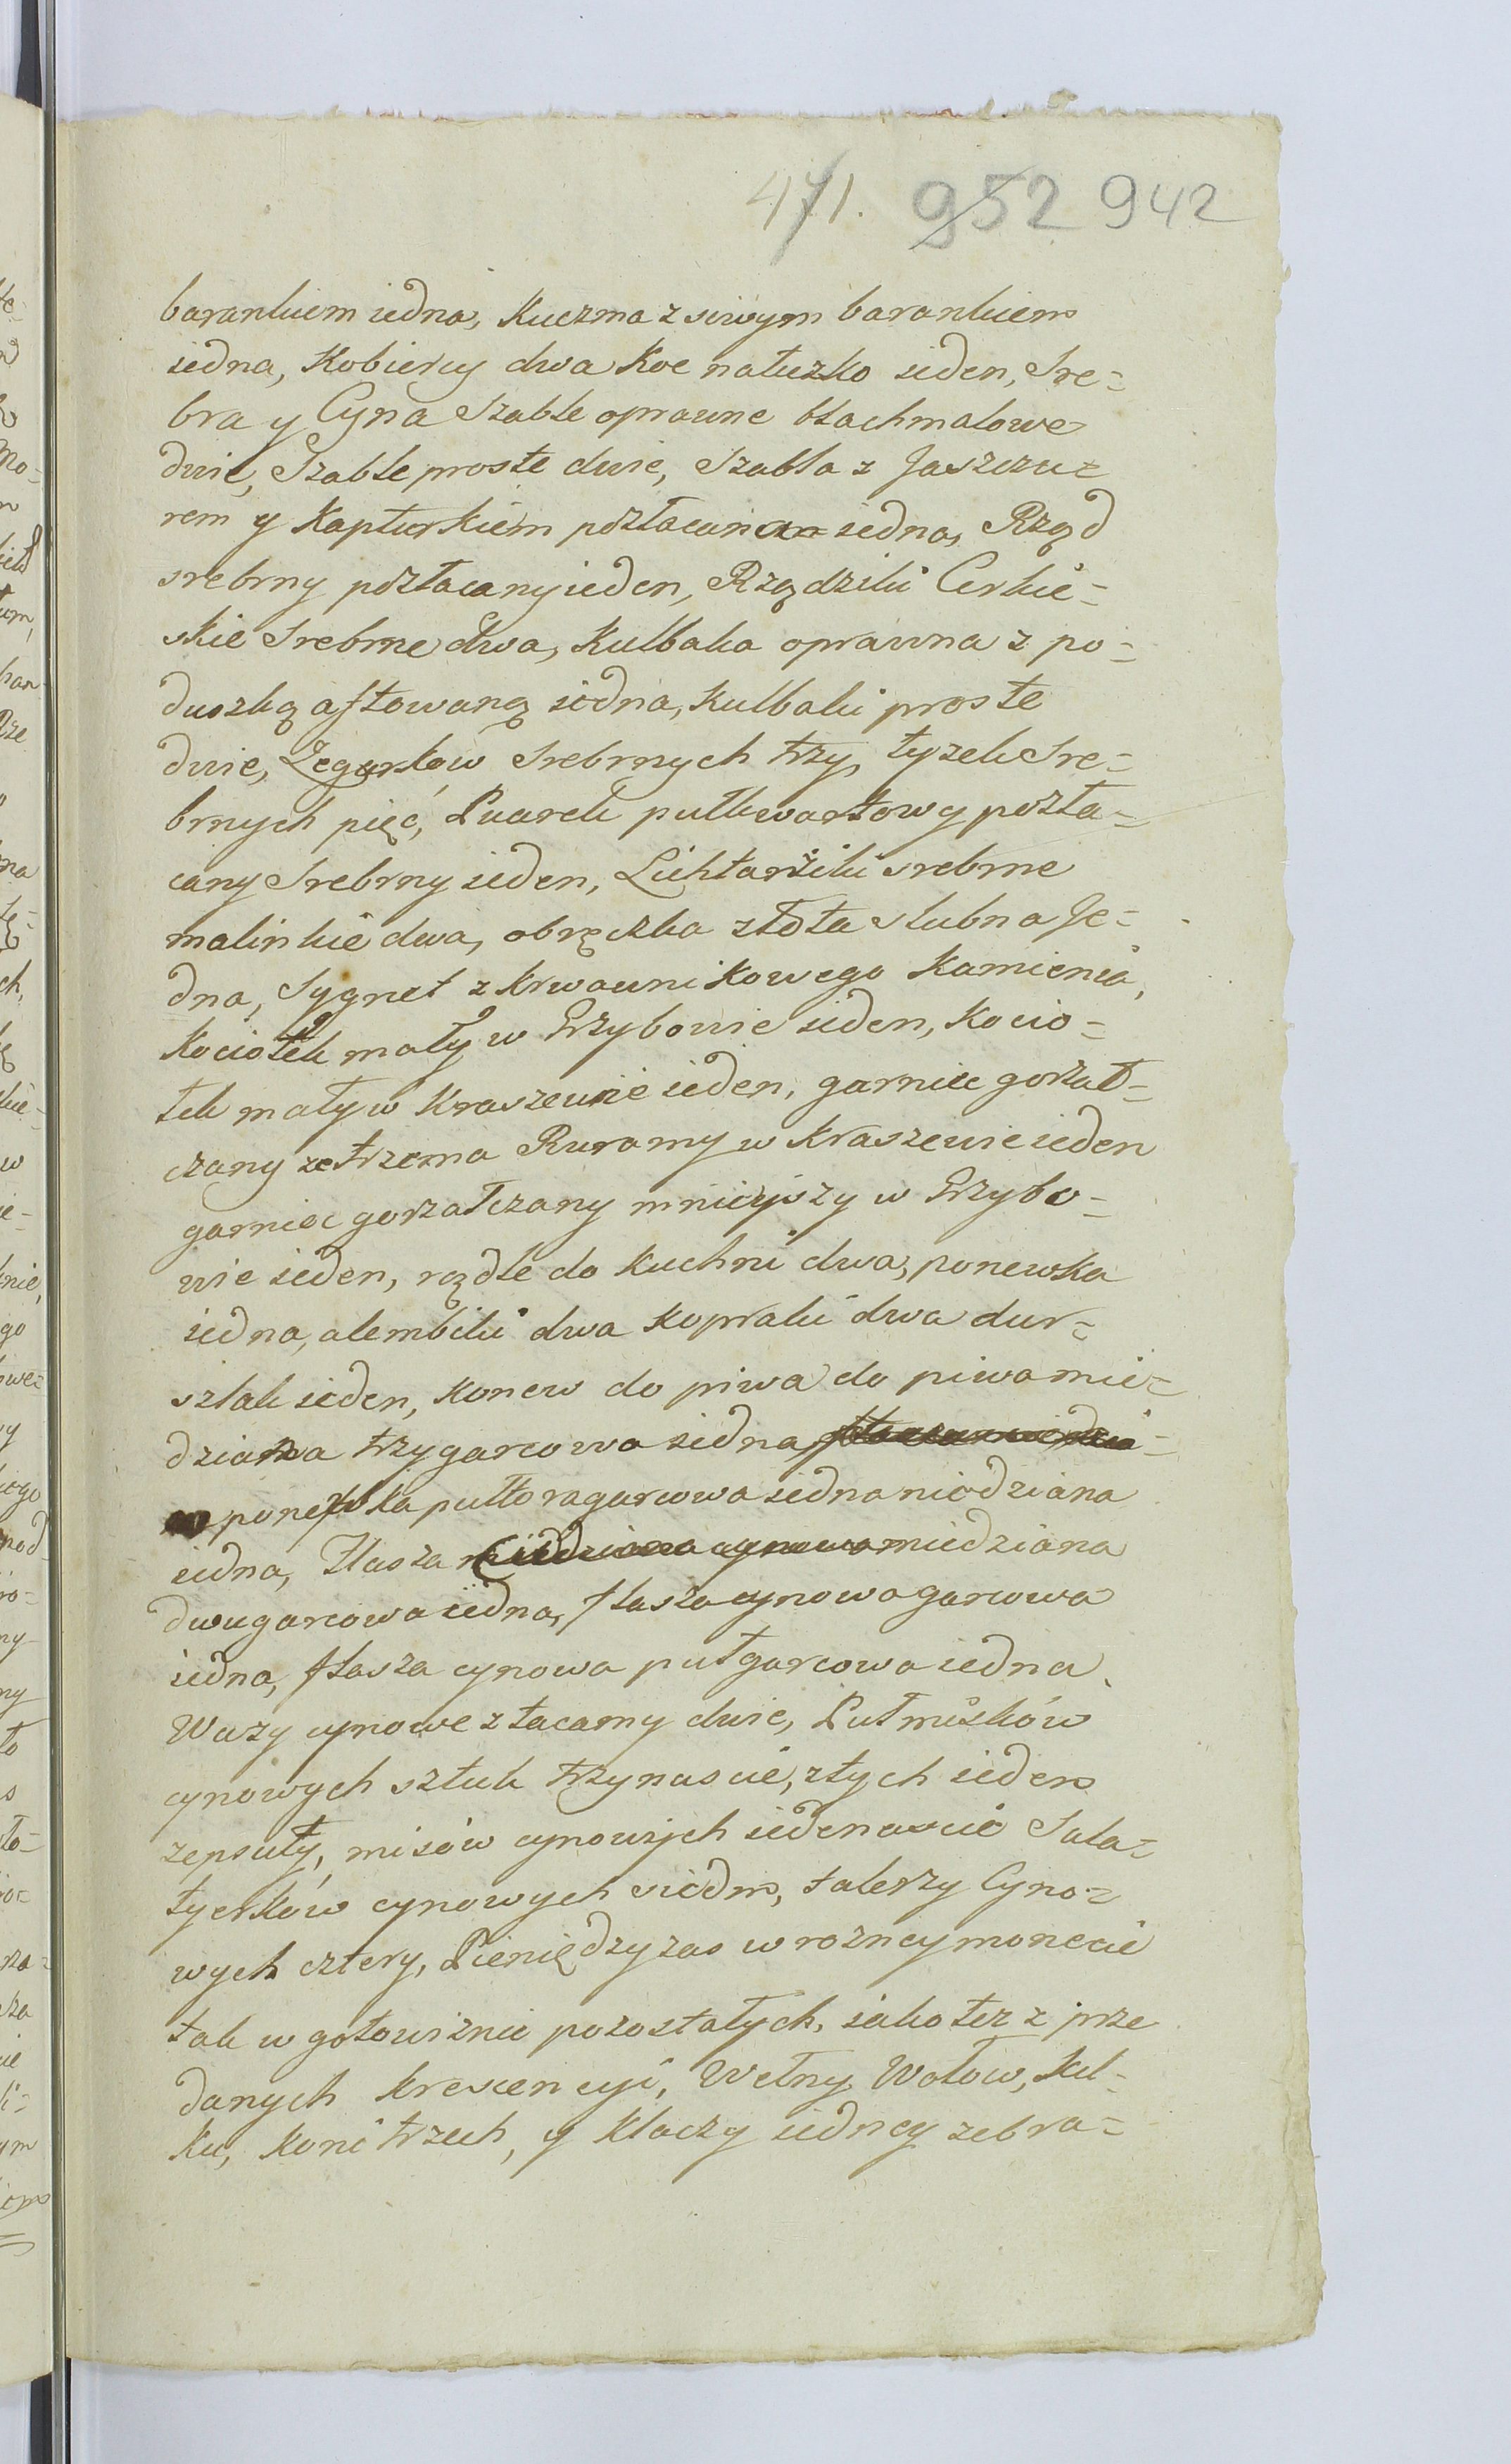 471. 952 942
barankiem iedna, Kuczma z siwym barankiem
iedna, Kobiercy dwa Koc na łuzko ieden, Sre=
bra y Cyna Szable oprawne blachmalowe
dwie, Szable proste dwie, Szabla z Jaszczu=
rem y Kapturkiem pozłacana iedna, Rząd
srebrny pozłacany ieden, Rządziki Cerkie=
skie Srebrne dwa, Kulbaka oprawna z po=
duszką aftowaną iedna, Kulbaki proste
dwie, Zegarkow Srebrnych trzy, łyzek Sre=
brnych pięć, Puarek pułkwartowy pozła=
cany Srebrny ieden, Lichtarziki srebrne
malinkie dwa, obrączka złota slubna Je=
dna, Sygnet z krwawnikowego Kamienia,
Kociołek mały w Grzybowie ieden, Kocio=
łek mały w Kraszewie ieden, garniec gorzał=
czany ze trzema Ruramy w Kraszewie ieden
garniec gorzałczany mnieyszy w Grzybo=
wie ieden, rądle do Kuchni dwa, ponewka
iedna, alembiki dwa Kopraki dwa dur=
szlak ieden, Konew do piwa do piwa mie=
dziana trzygarcowa iedna,
ponewka pułtoragarcowa iedna miedziana
iedna, Flasza miedziana cynowa miedziana
dwugarcowa iedna, flasza cynowa garcowa
iedna, flasza cynowa pułgarcowa iedna.
Wazy cynowe z tacamy dwie, Pułmisków
cynowych sztuk trzynascie, z tych ieden
zepsuty, misów cynowych iedenascie Sala=
tyerków cynowych siedm, talerzy Cyno=
wych cztery, Pieniędzy zas w rozney monecie
tak w gotowiznie pozostałych, iako tez z prze
danych krescencyi, Wełny Wołow, kil=
ku, Koni trzech, y Klaczy iedney zebra=